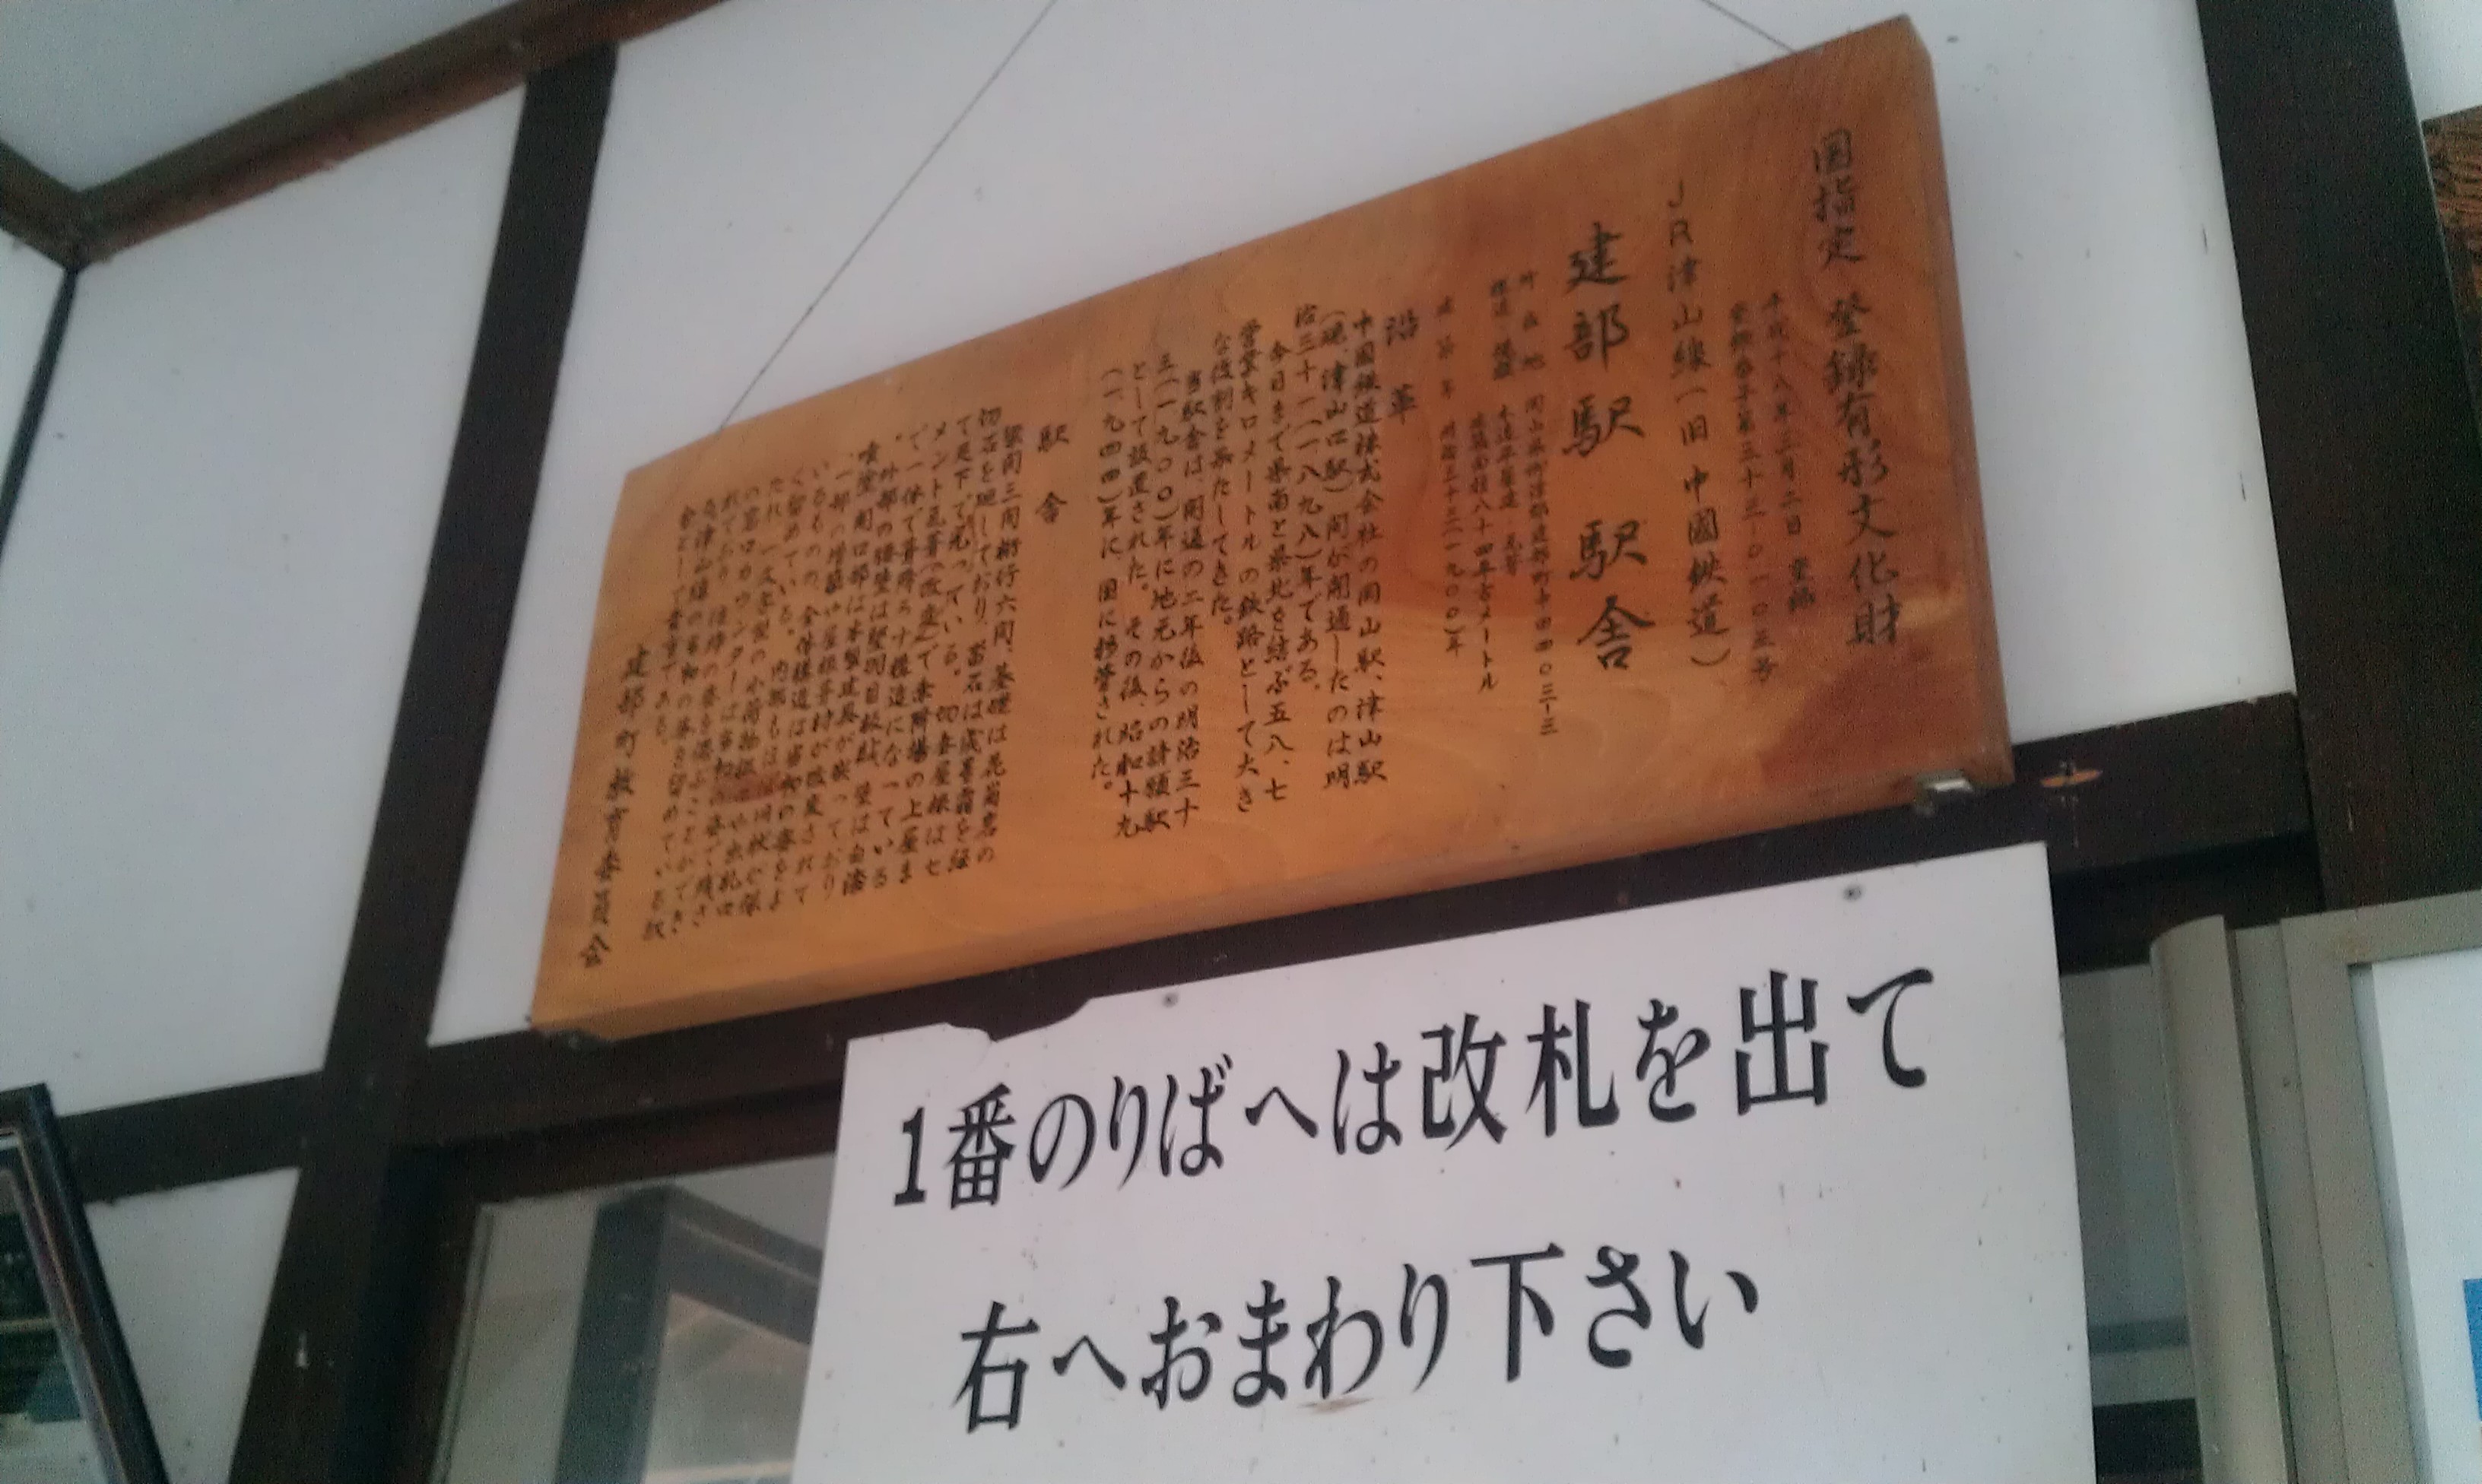 国指定 登録有形文化財
平成十八年三月二日 登録
登録番号第三十三-〇一〇三号
JR津山線(旧 中國鉄道)
建部駅 駅舎
所在地 岡山県御津郡建部町中田四〇三-三
構造・規模 木造平屋建・瓦葺
建築面積八十四平方メートル
建築年 明治三十三(一九〇〇)年
沿革
中國鉄道株式会社の岡山駅、津山駅
(現、津山口駅)間が開通したのは明
治三十一(一八九八)年である。
今日まで県南と県北を結ぶ五八、七
営業キロメートルの鉄路として大き
な役割を果たしてきた。
当駅舎は、開通の二年後の明治三十
三(一九〇〇)年に地元からの請願駅
として設置された。その後、昭和十九
(一九四四)年に、国に移管された。
駅舎
梁間三間桁行六間、基礎は花崗岩の
切石を廻しており、
て足下で光っている。切妻屋根はセ
メント瓦葺(改変)で乗降場の上屋ま
で一体で葺降ろす構造になっている
。外部の腰壁は竪羽目板張、壁は白漆
喰塗、開口部は木製建具が嵌っており
、一部の増築や屋根葺材が改変されて
いるものの、全体構造は当初の姿をよ
く留めている。内部も
たれ、一文字型の小荷物
の窓口カウンターは当初の姿で残さ
れており、往時の姿を偲ぶことができ
る津山線の当初の姿を留めている駅
舎として貴重である。
建部町教育委員会
1番のりばへは改札を出て
右へおまわり下さい